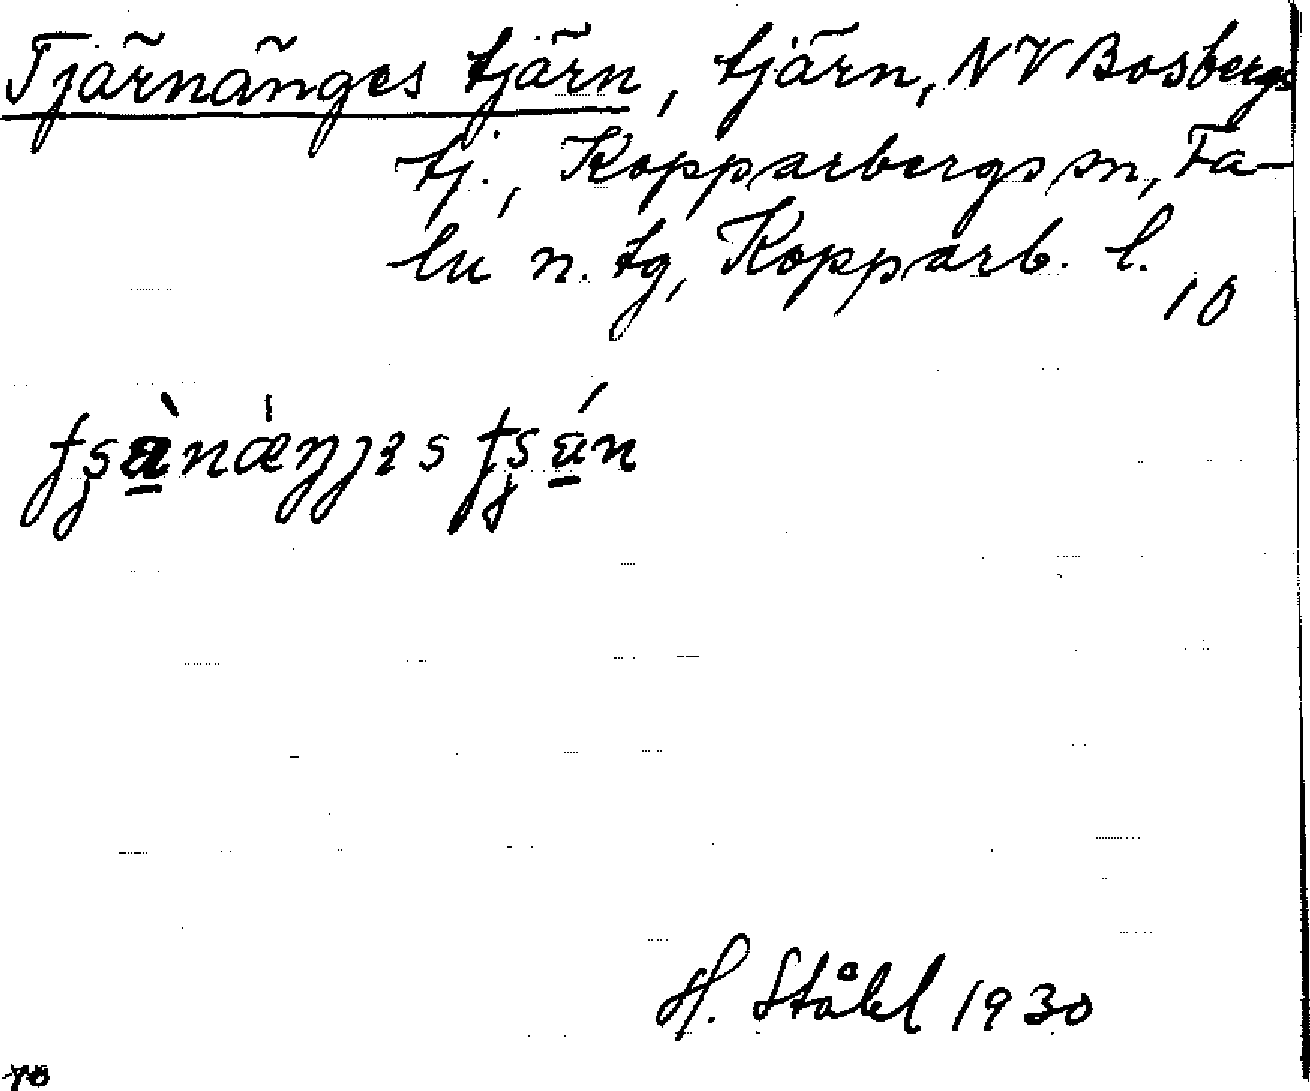 Tjärnänges tjärn, tjärn, NV Bosbergs
tj., Kopparbergs sn, Fa-
lu n. tg, Kopparb. l.
10
H. Ståhl 1930